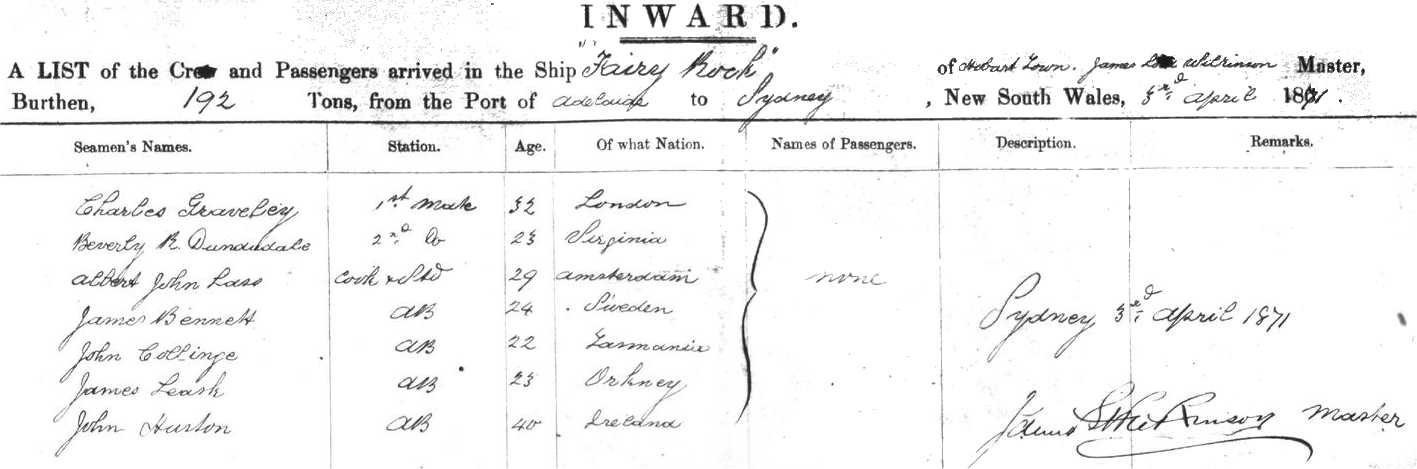 INWARD.
A LIST of the Crew and Passengers arrived in the Ship "Fairy Rock" of Hobart Town. James Wilkinson Master,
Burthen, 192 Tons, from the Port of Adelaide to Sydney, New South Wales, 3rd April 1871.
Seamen's Names. Station. Age. Of what Nation. Names of Passengers. Description. Remarks.
Charles Graveley 1st Mate 32 London
Beverly R. 2nd Do 23 Virginia
Albert John Lass Cook & Std 29 Amsterdam none
James Bennett AB 24 Sweden Sydney 3rd April 1871
John Collinge AB 22 Tasmania
James Leask AB 23 Orkney
John Huston AB 40 Ireland James Wilkinson Master